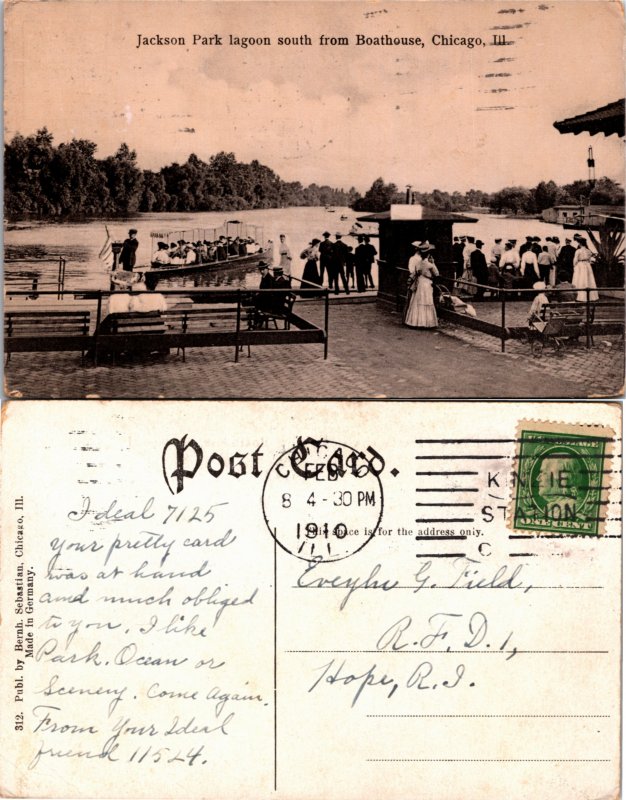 Jackson Park lagoon south from Boathouse, Chicago, Ill.
Post Card.
CHICAGO
FEB
8 4-30PM
1910
ILL.
KINZIE
STATION
C
ONE CENT
This space is for the address only.
312. Publ. by Bernh. Sebastian, Chicago, Ill.
Made in Germany.
Ideal 7125
your pretty card
was at hand
and much obliged
to you. I like
Park. Ocean or
Scenery. Come Again.
From Your Ideal
friend 11524.
G. Field,
R.F.D.1,
Hope, R.I.